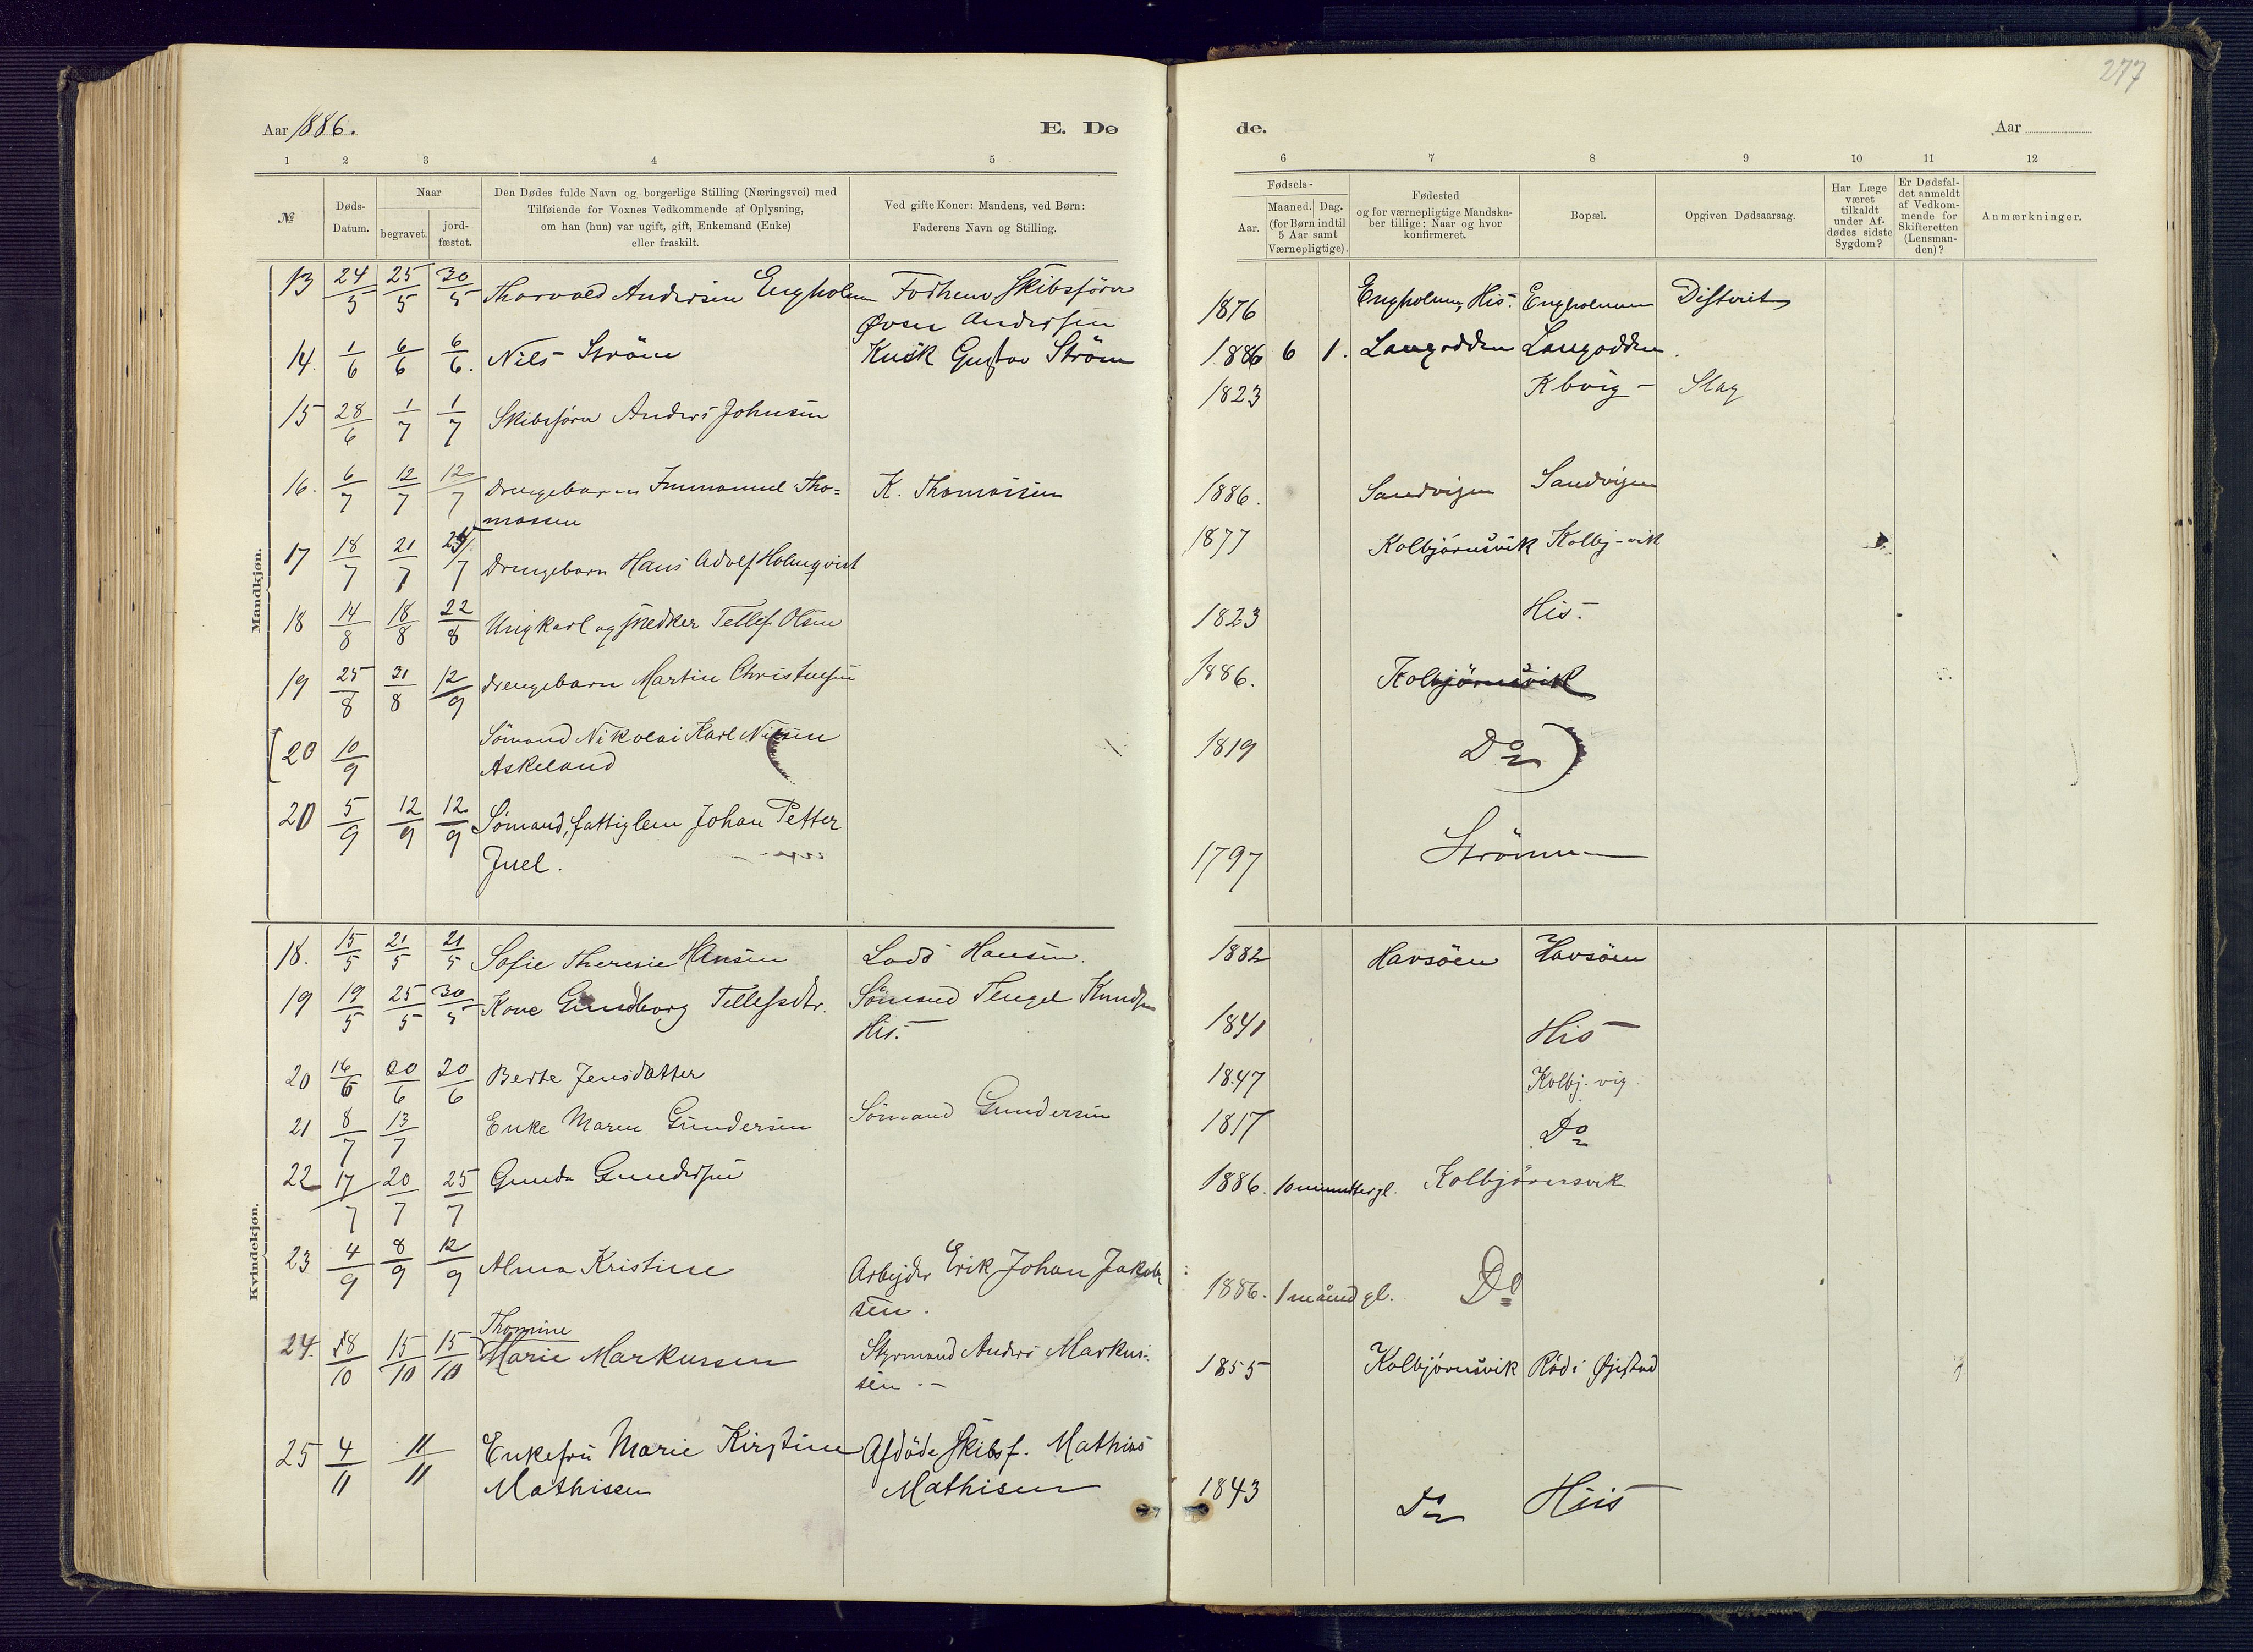 277
Aar 1886. E. Dø de. Aar
1 2 3 4 5 6 7 8 9 10 11 12
№
Døds-
Datum.
Naar
begravet.
jord-
fæstet.
Den Dødes fulde Navn og borgerlige Stilling (Næringsvei) med
Tilføiende for Voxnes Vedkommende af Oplysning,
om han (hun) var ugift, gift, Enkemand (Enke)
eller fraskilt.
Ved gifte Koner: Mandens, ved Børn:
Faderens Navn og Stilling.
Fødsels-
Aar.
Maaned. Dag.
(for Børn indtil
5 Aar samt
Værnepligtige).
Fødested
og for værnepligtige Mandska-
ber tillige: Naar og hvor
konfirmeret.
Bopæl.
Opgiven Dødsaarsag.
Har Læge
været
tilkaldt
under Af-
dødes sidste
Sygdom?
Er Dødsfal-
det anmeldt
af Vedkom-
mende for
Skifteretten
(Lensman-
den)?
Anmærkninger.
Mandkjøn.
13 24/5 25/5 30/5 Thorvald Andersen Engholm Forhenv Skibsfører 1876 Engholmen, His. Engholmen Difterit
Øven Anderssen
14. 1/6 6/6 6/6. Nils Ström Kusk Gustav Ström 1886 6 1. Langodden Langodden.
15 28/6 1/7 1/7 Skibsfører Anders Johnsen 1823 Kbvig - Slag
16. 6/7 12/7 12/7 Drengebarn Immanuel Tho= K. Thomassen 1886. Sandvigen Sandvigen
massen
17 18/7 21/7 25/7 Drengebarn Hans Adolf Holmqvist 1877 Kolbjörnsvik Kolbj-vik
18 14/8 18/8 22/8 Ungkarl og snedker Tellef Olsen 1823 His.
19 25/8 31/8 12/9 Drengebarn Martin Christensen 1886. Kolbjörnsvik
[20 10/9 Sömand Nikolai Karl Nilsen 1819 Do)
Askeland
20 5/9 12/9 12/9 Sömand, fattiglem Johan Petter 1797 Strömmen
Juel.
Kvindekjøn.
18. 15/5 21/5 21/5 Sofie Theresie Hansen Lods Hansen. 1882 Havsöen Havsöen
19 19/5 25/5 30/5 Kone Gundborg Tellefsdtr. Sömand Tengel Knudsen 1841 His
His.
20 16/6 20/6 20/6 Berte Jensdatter 1847 Kolbj. vig
21 8/7 13/7 Enke Maren Gundersen Sömand Gundersen 1817 Do
22 17/7 20/7 25/7 Gunda Gunderssen 1886. 10 minutter gl. Kolbjörnsvik
23 4/9 8/9 12/9 Alma Kristine Arbejder Erik Johan Jakob- 1886. 1 månd gl. Do
sen.
Thomine
24. 8/10 15/10 15/10 Marie Markussen Styrmand Anders Markus- 1855 Kolbjörnsvik Röd i Øjestad
sen.-
25 4/11 11/11 Enkefru Marie Kirstine Afdöde Skibsf. Mathias 1843 Do His
Mathissen Mathisen